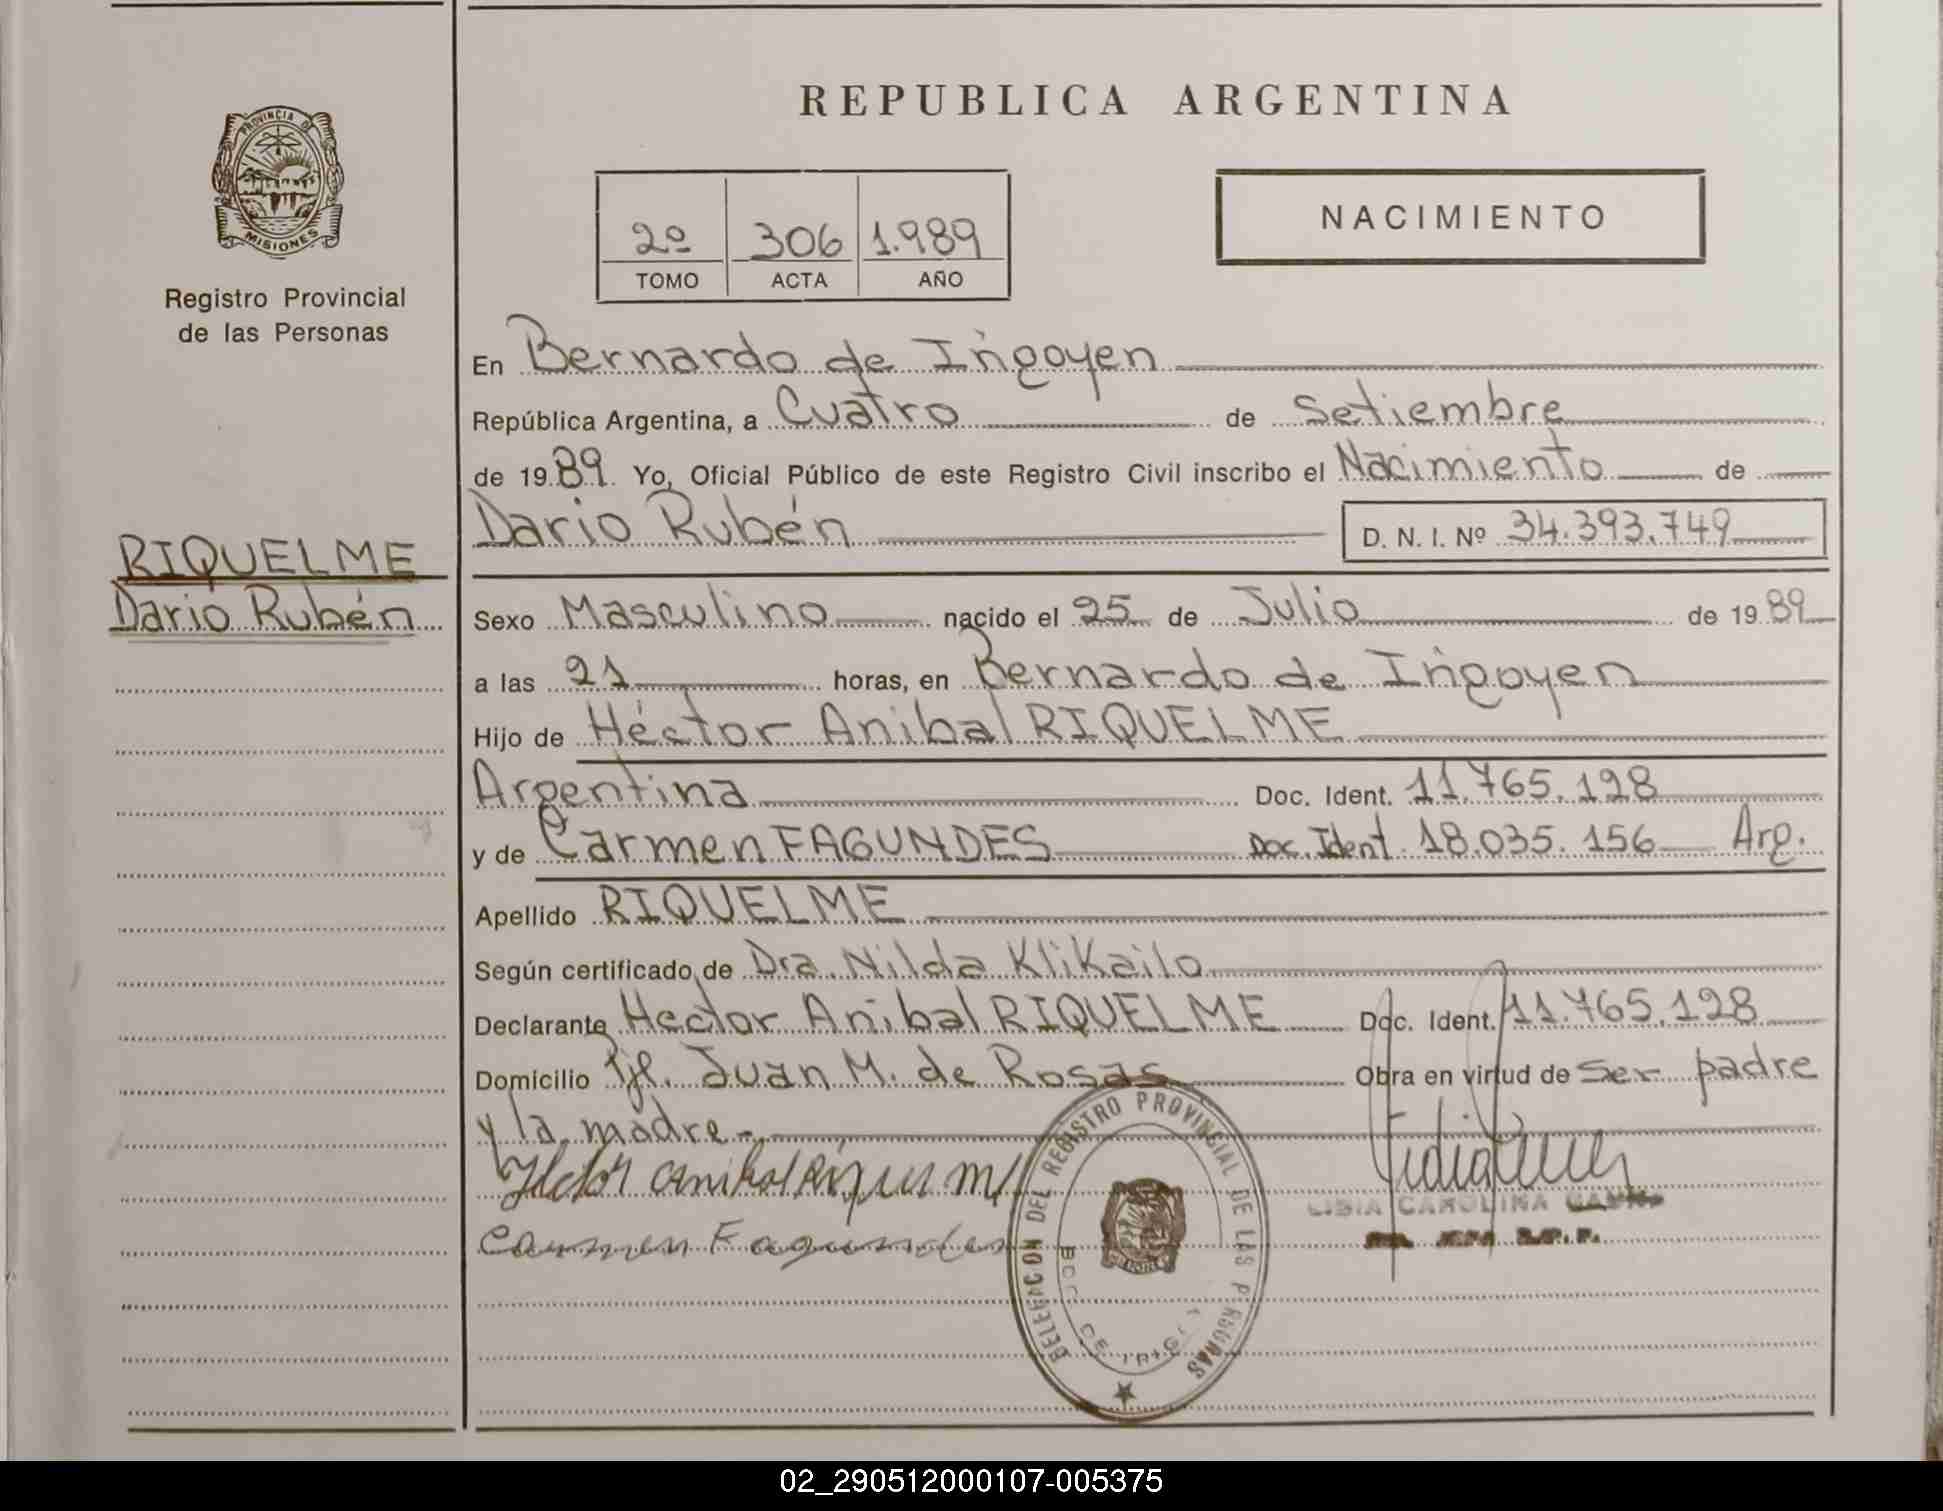 PROVINCIA DE
MISIONES
Registro Provincial
de las Personas
RIQUELME
Dario Rubén
REPUBLICA ARGENTINA
2º 306 1.989
TOMO ACTA AÑO
NACIMIENTO
En Bernardo de Irigoyen
República Argentina, a Cuatro de Setiembre
de 1989 Yo, Oficial Público de este Registro Civil inscribo el Nacimiento de
Dario Rubén D. N. I. Nº 34.393.749
Sexo Masculino nacido el 25 de Julio de 1989
a las 21 horas, en Bernardo de Irigoyen
Hijo de Héctor Anibal RIQUELME
Argentina Doc. Ident. 11.765.128
y de Carmen FAGUNDES Doc. Ident. 18.035.156 Arg.
Apellido RIQUELME
Según certificado de Dra. Nilda Klikailo
Declarante Hector Anibal RIQUELME Doc. Ident. 11.765.128
Domicilio Juan M. de Rosas Obra en virtud de ser padre
y la madre-
Hector Anibal Riquelme
Carmen Fagundes
LIBIA CAROLINA
DELEGACION DEL REGISTRO PROVINCIAL DE LAS PERSONAS
02_290512000107-005375